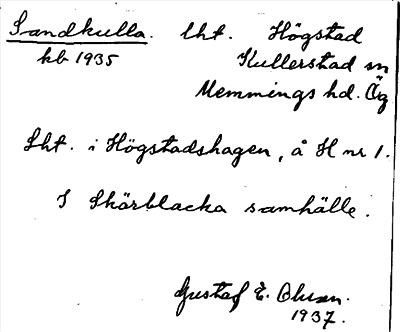 Sandkulla. lht. Högstad
kb 1935 Kullerstad sn
Memmings hd. Ög
Lht. i Högstadshagen, å H nr 1.
I Skärblacka samhälle.
Gustaf E. Olsson.
1937.